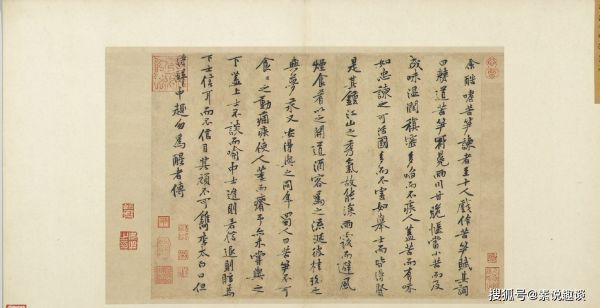 余酷嗜苦笋諫者至十人戲作苦笋賦其詞
曰僰道苦笋冠冕兩川甘脆愜當小苦而反
成味溫潤縝密多啗而不疾人蓋苦而有味
如忠諫之可活國多而不害如舉士而皆得賢
是其鍾江山之秀氣故能深雨露而避風
煙食肴以之開道酒客為之流涎彼桂玫之
與夢汞又安得與之同年蜀人曰苦笋不可
食食之動痼疾使人萎而瘠予亦未嘗與之
下蓋上士不談而喻中士進則若信退則眩焉
下士信耳而不信目其頑不可鐫李太白曰但
得醉中趣勿為醒者傳
搜狐号@紫说趣谈